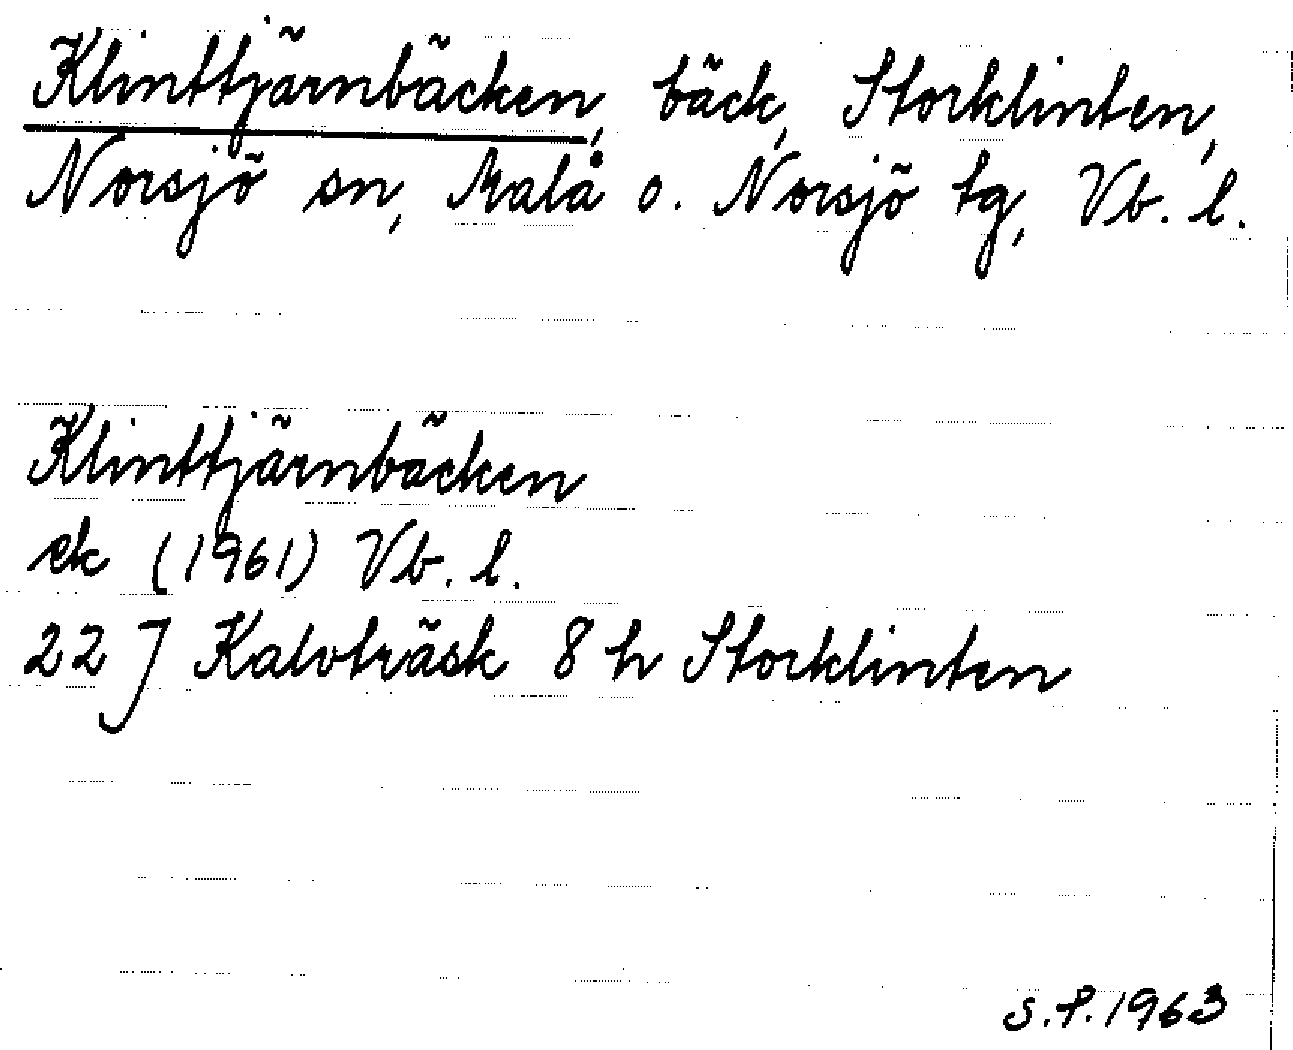 Klinttjärnbäcken, bäck, Storklinten,
Norsjö sn, Malå o. Norsjö tg, Vb. l.
Klinttjärnbäcken
ek (1961) Vb. l.
22 J Kalvträsk 8 h Storklinten
S.P. 1963